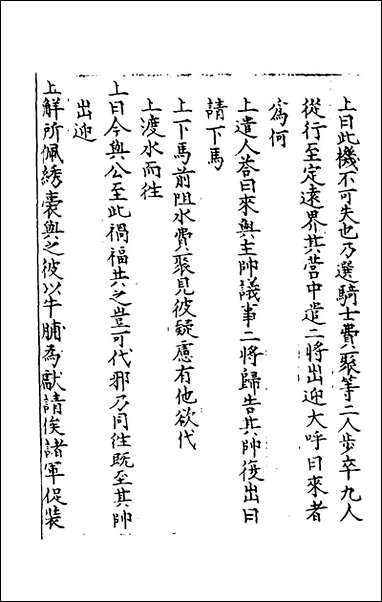 上曰此機不可失也乃選騎士費聚等二人步卒九人
從行至定遠界其營中遣二將出迎大呼曰來者
爲何
上遣人荅曰來與主帥議事二將歸告其帥復出曰
請下馬
上下馬前阻水費聚見彼疑慮有他欲代
上渡水而往
上曰今與公至此禍福共之豈可代邪乃同往既至其帥
出迎
上解所佩綉囊與之彼以牛脯為獻請俟諸軍促裝